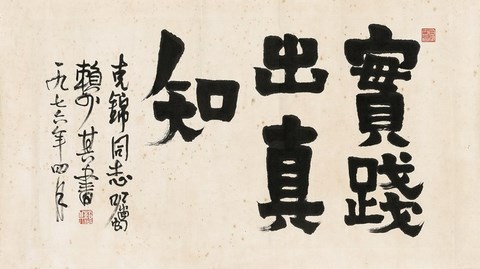 實踐
出真
知
克錦同志囑
賴少其書
一九七六年四月